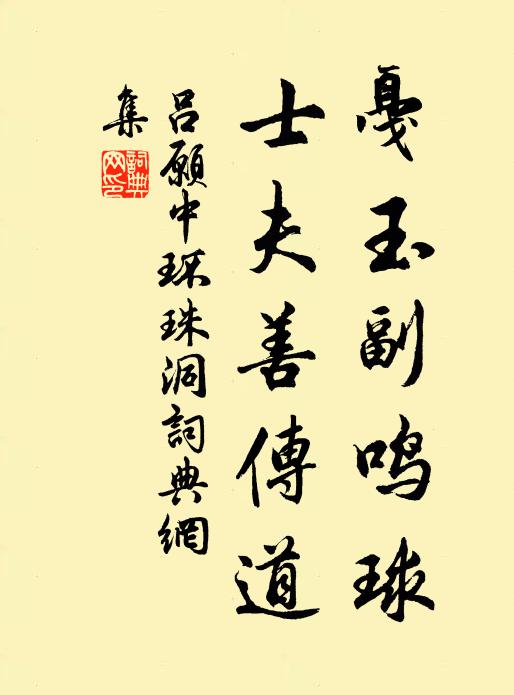 戛玉副鸣球
士夫善傳道
吕願中琛珠洞詞典網
集
詞典網印